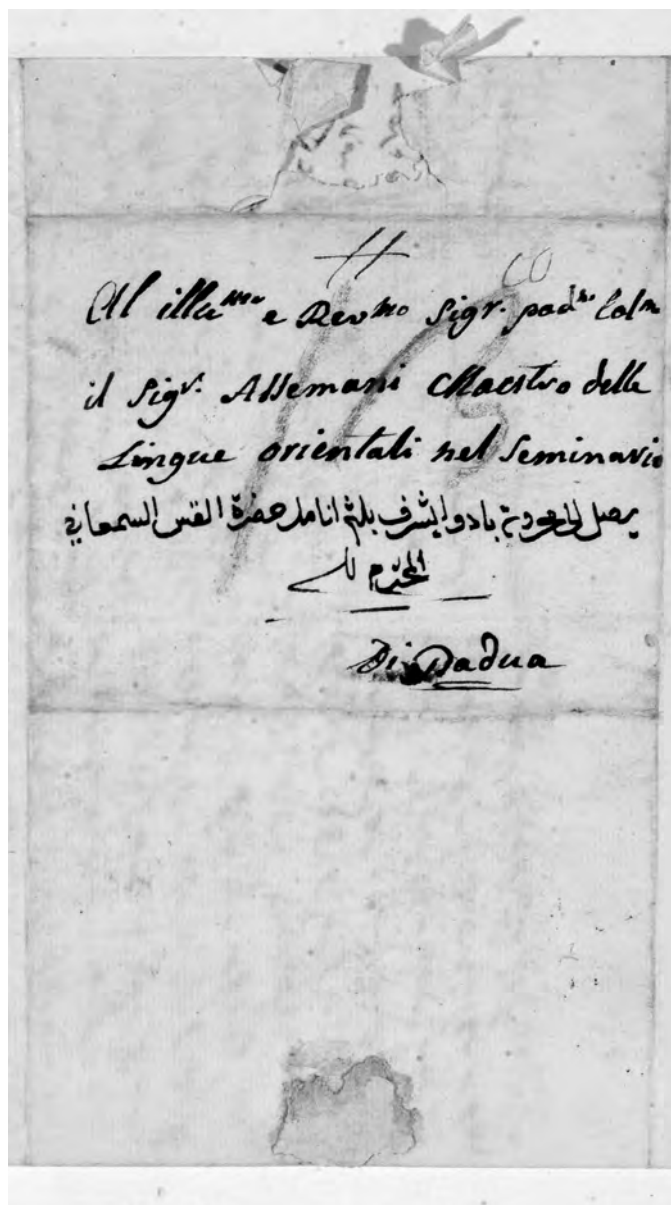 Al illu^mo e Rev^mo Sigr. pad^ne Col^mo
il Sigr. Assemani Maestro delle
Lingue orientali nel Seminario
يصل الى محروسة بادوا يتشرف بلثم انامل حضرة القس السمعاني
المحترم
Di Padua